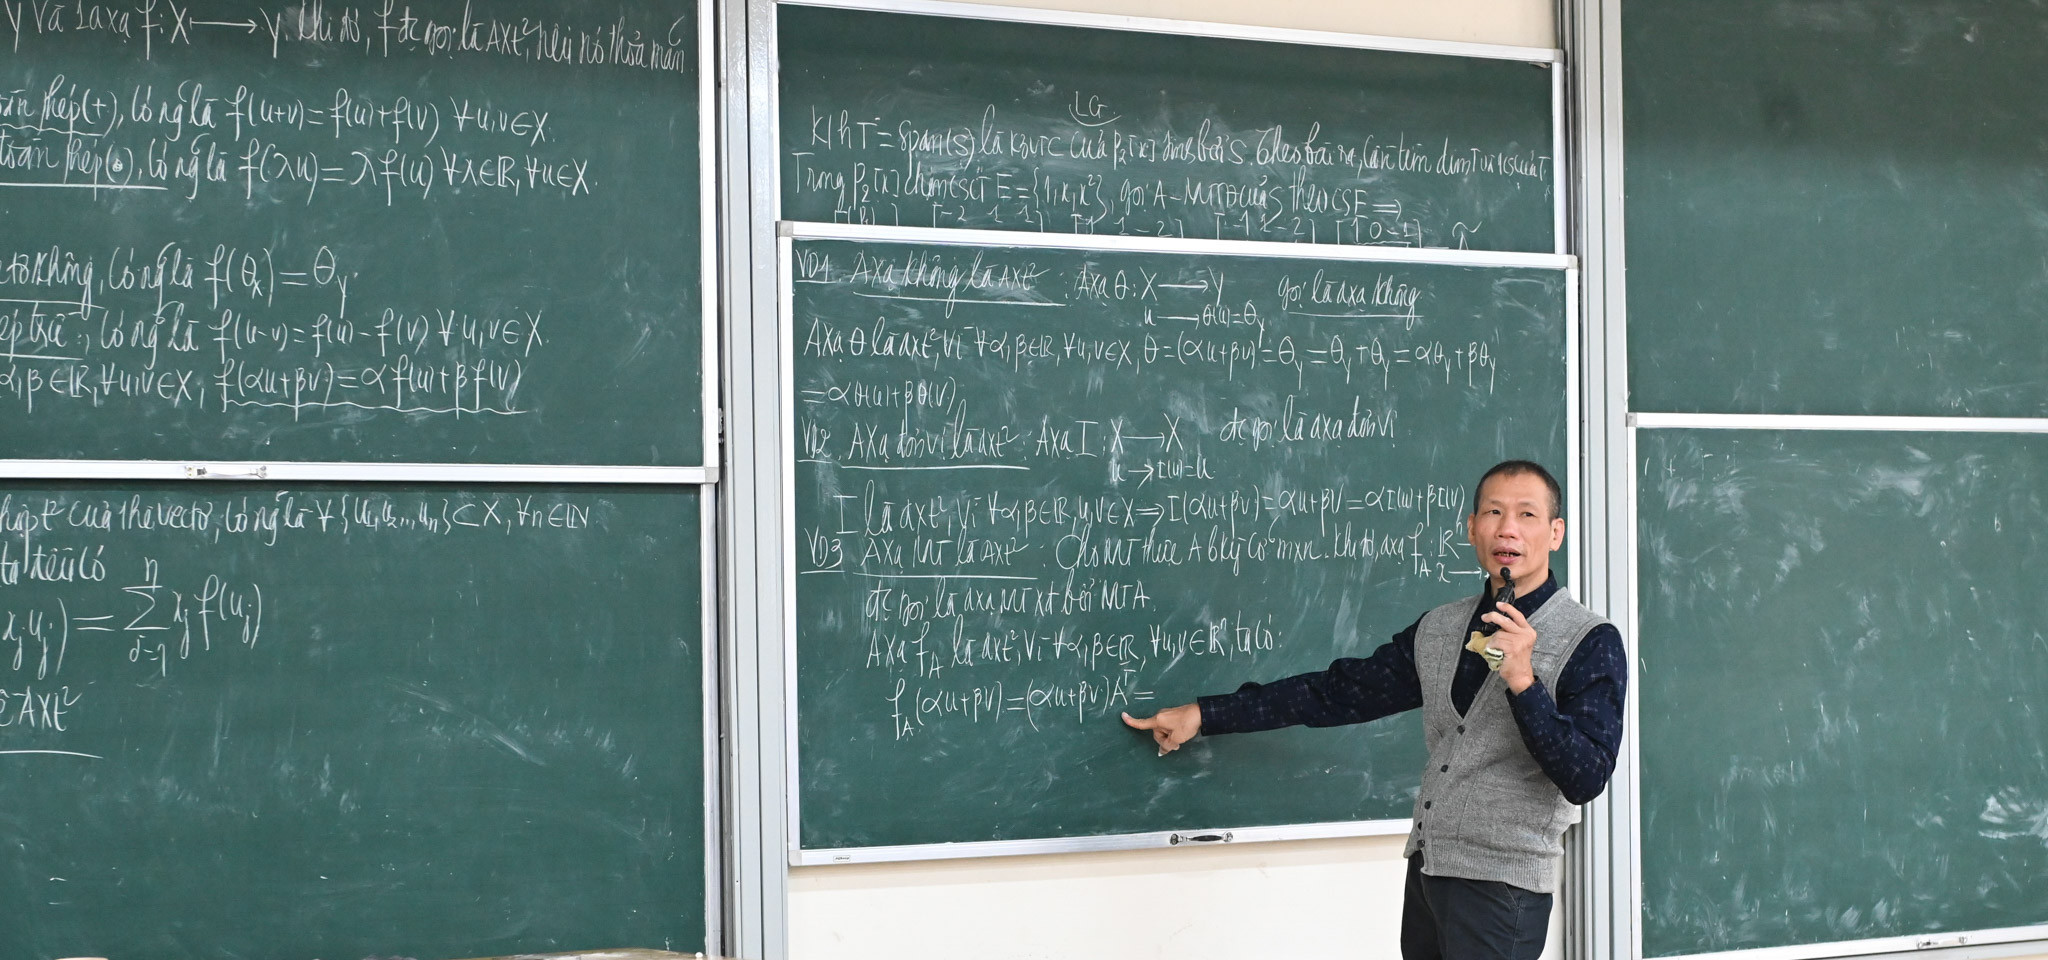 Y và 1 axạ f: X ⟼ Y. Khi đó, f đc gọi là AXt², nếu nó thỏa mãn
toàn phép(+), có nglà f(u+v)=f(u)+f(v) ∀u,v∈X.
toàn phép(•), có nglà f(λu)=λf(u) ∀λ∈ℝ, ∀u∈X.
tơ không, có nglà f(θₓ)=θ_Y.
ép trừ:, có nglà f(u-v)=f(u)-f(v) ∀u,v∈X.
α,β∈ℝ,∀u,v∈X, f(αu+βv)=αf(u)+βf(v)
hợp t² của 1 hệ vectơ, có nglà ∀{u₁,u₂,..,uₙ}⊂X, ∀n∈ℕ
ta đều có
xⱼuⱼ)=∑ⱼ₌₁ⁿ xⱼf(uⱼ)
AXt²
LG
K/h T=span(S) là kgvtc của P₂[x] sinh bởi S. Theo bài ra, cần tìm dimT và 1 cs của T.
Trong P₂[x] chọn csct E={1,x,x²}, gọi A-MTTĐ của S theo cs E ⇒
VD1. AXạ không là AXt²: AXạ θ: X ⟶ Y gọi là axạ không
u ⟶ θ(u)=θ_Y
AXạ θ là axt², vì ∀α,β∈ℝ,∀u,v∈X, θ=(αu+βv)=θ_Y=θ_Y+θ_Y=αθ_Y+βθ_Y
=αθ(u)+βθ(v).
VD2. AXạ đơn vị là axt²: AXạ I: X ⟶ X đc gọi là axạ đơn vị
u ⟶ I(u)=u
I là axt², vì ∀α,β∈ℝ,u,v∈X⇒I(αu+βv)=αu+βv=αI(u)+βI(v)
VD3 AXạ MT là AXt²: Cho MT thực A bkỳ cỡ m×n. Khi đó, axạ f_A: ℝⁿ
x ⟶
đc gọi là axạ MT xđ bởi MT A.
AXạ f_A là axt², vì ∀α,β∈ℝ, ∀u,v∈ℝⁿ, ta có:
f_A(αu+βv)=(αu+βv)Aᵀ=